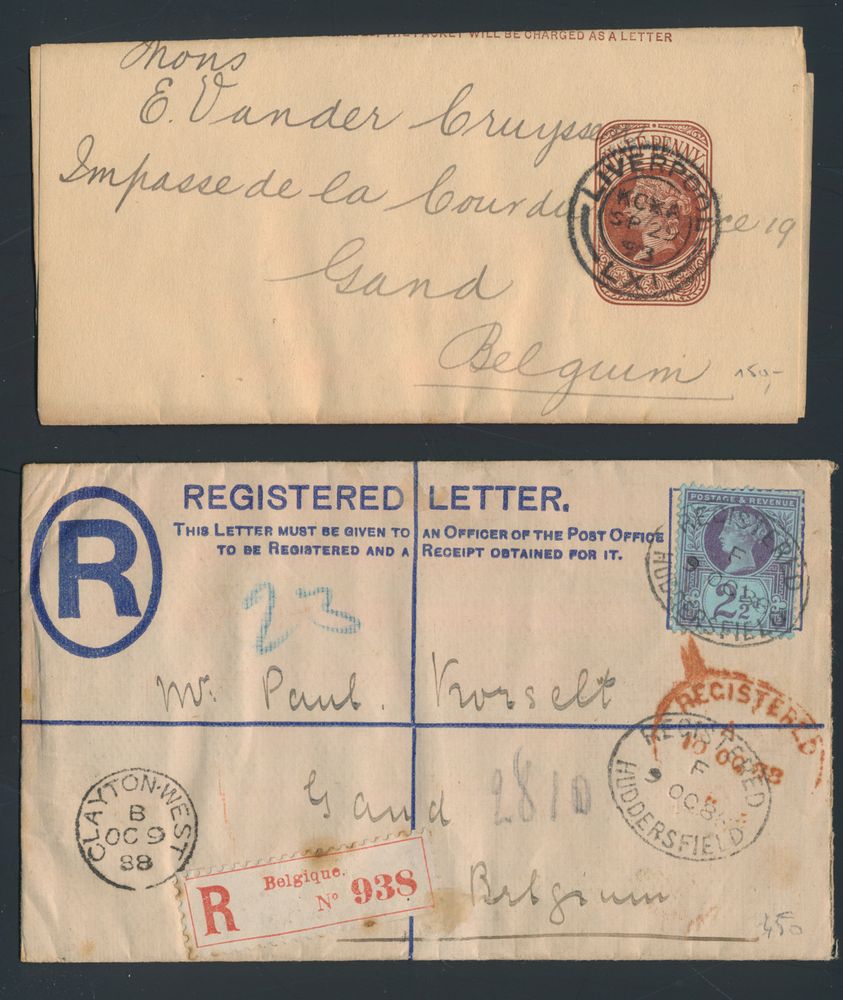 THE PACKET WILL BE CHARGED AS A LETTER
Mons
E. Vander Cruyssen
HALFPENNY
Impasse de la Cour du ce 19
LIVERPOOL
KCKA
SP 29
93
LXI
Gand
Belgium
150,-
R
REGISTERED LETTER.
THIS LETTER MUST BE GIVEN TO AN OFFICER OF THE POST OFFICE
TO BE REGISTERED AND A RECEIPT OBTAINED FOR IT.
POSTAGE & REVENUE
2½
REGISTERED
F
9 OC 88
HUDDERSFIELD
23
Mr. Paul. Korselt
REGISTERED
A
10 OC 88
REGISTERED
F
9 OC 88
HUDDERSFIELD
Gand
2810
CLAYTON-WEST
B
OC 9
88
R
Belgique.
N° 938
Belgium
450